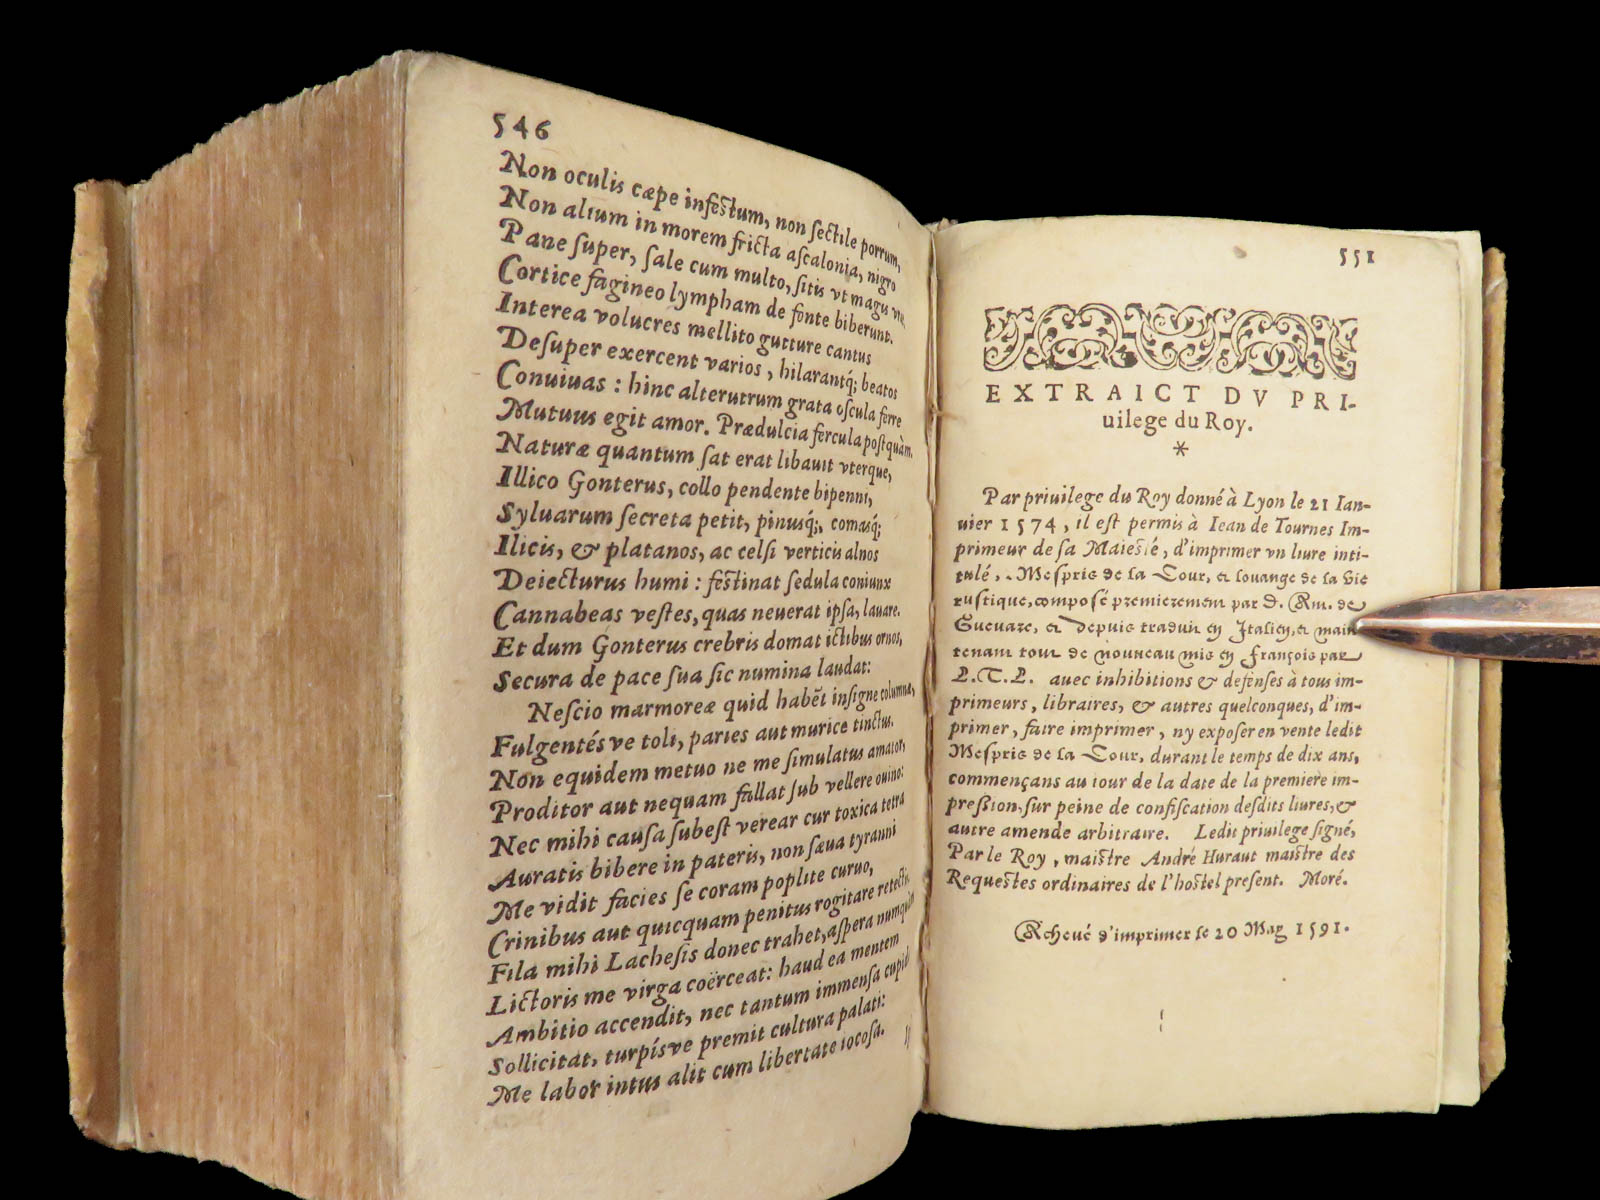 546
Non oculis cæpe infestum, non sectile porrum,
Non alium in morem fricta ascalonia, nigro
Pane super, sale cum multo, sitis vt magis
Cortice fagineo lympham de fonte biberunt.
Interea volucres mellito gutture cantus
Desuper exercent varios, hilarantq́; beatos
Conuiuas : hinc alterutrum grata oscula ferre
Mutuus egit amor. Prædulcia fercula postquàm
Naturæ quantum sat erat libauit vterque,
Illico Gonterus, collo pendente bipenni,
Syluarum secreta petit, pinusq́;, comasq́;
Ilicis, & platanos, ac celsi verticis alnos
Deiecturus humi : festinat sedula coniunx
Cannabeas vestes, quas neuerat ipsa, lauare.
Et dum Gonterus crebris domat ictibus ornos,
Secura de pace sua sic numina laudat:
Nescio marmoreæ quid habẽt insigne columnæ,
Fulgentésve toli, paries aut murice tinctus.
Non equidem metuo ne me simulatus amator,
Proditor aut nequam fallat sub vellere ouino:
Nec mihi causa subest verear cur toxica tetra
Auratis bibere in pateris, non sæua tyranni
Me vidit facies se coram poplite curuo,
Crinibus aut quicquam penitus rogitare retectis
Fila mihi Lachesis donec trahet, aspera numquàm
Lictoris me virga coërceat: haud ea mentem
Ambitio accendit, nec tantum immensa cupido
Sollicitat, turpísve premit cultura palati:
Me labor intus alit cum libertate iocosa.
551
EXTRAICT DV PRI-
uilege du Roy.
*
Par priuilege du Roy donné à Lyon le 21 Ian-
uier 1574, il est permis à Iean de Tournes Im-
primeur de sa Maiesté, d'imprimer vn liure inti-
tulé, Mespris de la Cour, et louange de la vie
rustique, composé premierement par D. Ant. de
Gueuare, et depuis traduit en Italien, et main
tenant tout de nouueau mis en François par
L.T.L. auec inhibitions & defenses à tous im-
primeurs, libraires, & autres quelconques, d'im-
primer, faire imprimer, ny exposer en vente ledit
Mespris de la Cour, durant le temps de dix ans,
commençans au iour de la date de la premiere im-
pression, sur peine de confiscation desdits liures, &
autre amende arbitraire. Ledit priuilege signé,
Par le Roy, maistre André Huraut maistre des
Requestes ordinaires de l'hostel present. Moré.
Acheué d'imprimer le 20 May 1591.